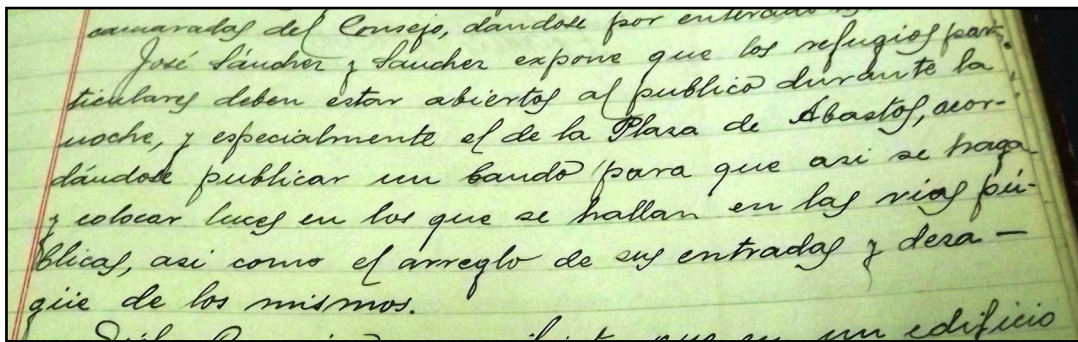 camaradas del Consejo, dandose por enterado
José Sánchez y Sanchez expone que los refugios par-
ticulares deben estar abiertos al publico durante la
noche, y especialmente el de la Plaza de Abastos, acor-
dándose publicar un bando para que asi se haga
y colocar luces en los que se hallan en las vias pú-
blicas, asi como el arreglo de sus entradas y desa-
güe de los mismos.
que en un edificio